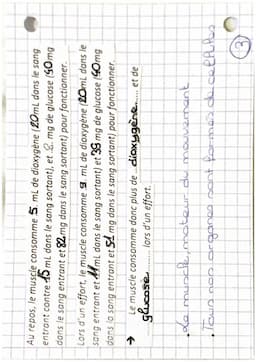 Au repos, le muscle consomme 5 mL de dioxygène (20mL dans le sang
entrant contre 15 mL dans le sang sortant), et 8 mg de glucose (90mg
dans le sang entrant et 82 mg dans le sang sortant) pour fonctionner.
Lors d'un effort, le muscle consomme 9 mL de dioxygène (20mL dans le
sang entrant et 11 mL dans le sang sortant) et 39 mg de glucose (90mg
dans le sang entrant et 51 mg dans le sang sortant) pour fonctionner.
→ Le muscle consomme donc plus de dioxygène et de
glucose lors d'un effort.
• Le muscle, moteur du mouvement
• Tous nos organes sont formés de cellules
3